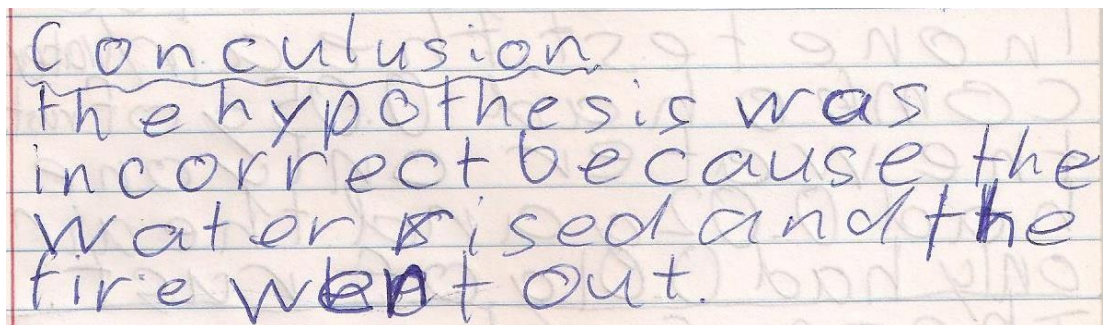 Conculusion
the hypothesis was
incorrect because the
water rised and the
fire went out.